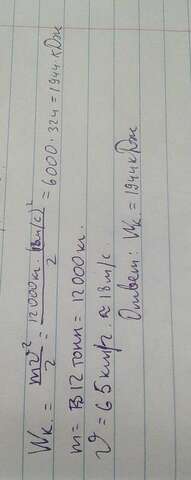 Wк = mv²/2 = 12000кг·(18м/с)²/2 = 6000·324 = 1944кДж
m = 12 тонн = 12000кг.
v = 65км/г. ≈ 18м/с.
Ответ: Wк = 1944кДж